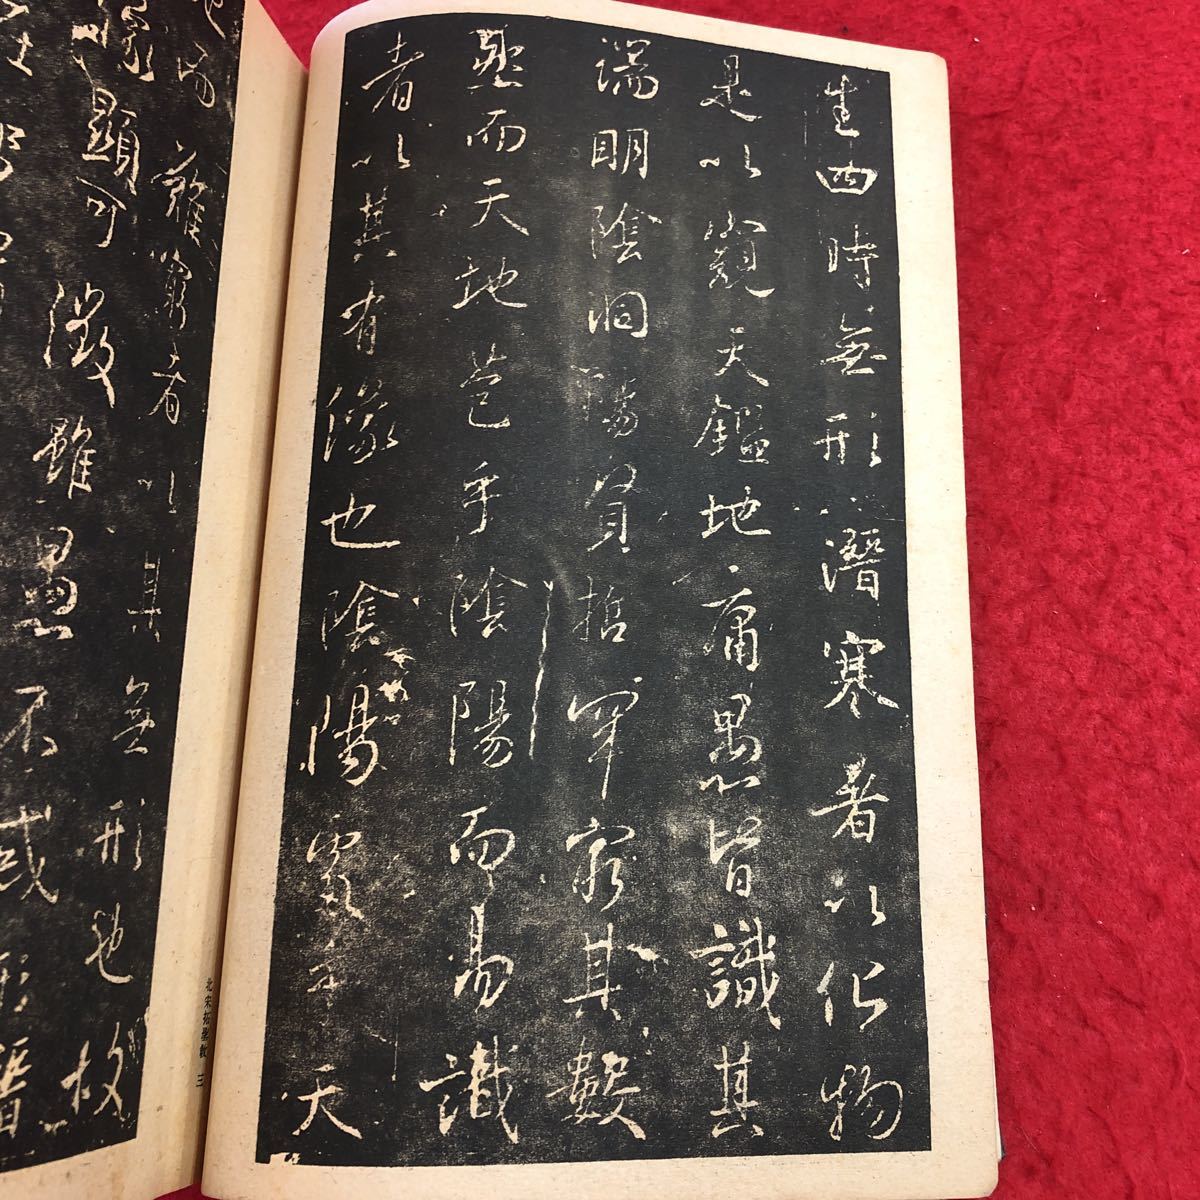 生四時無形潛寒暑以化物
是以窺天鑑地庸愚皆識其
端明陰洞陽賢哲罕窮其數
然而天地苞乎陰陽而易識
者以其有像也陰陽處乎天
北宋拓聖教 三
地而難窮者以其無形也故
像顯可徵雖愚不惑形潛